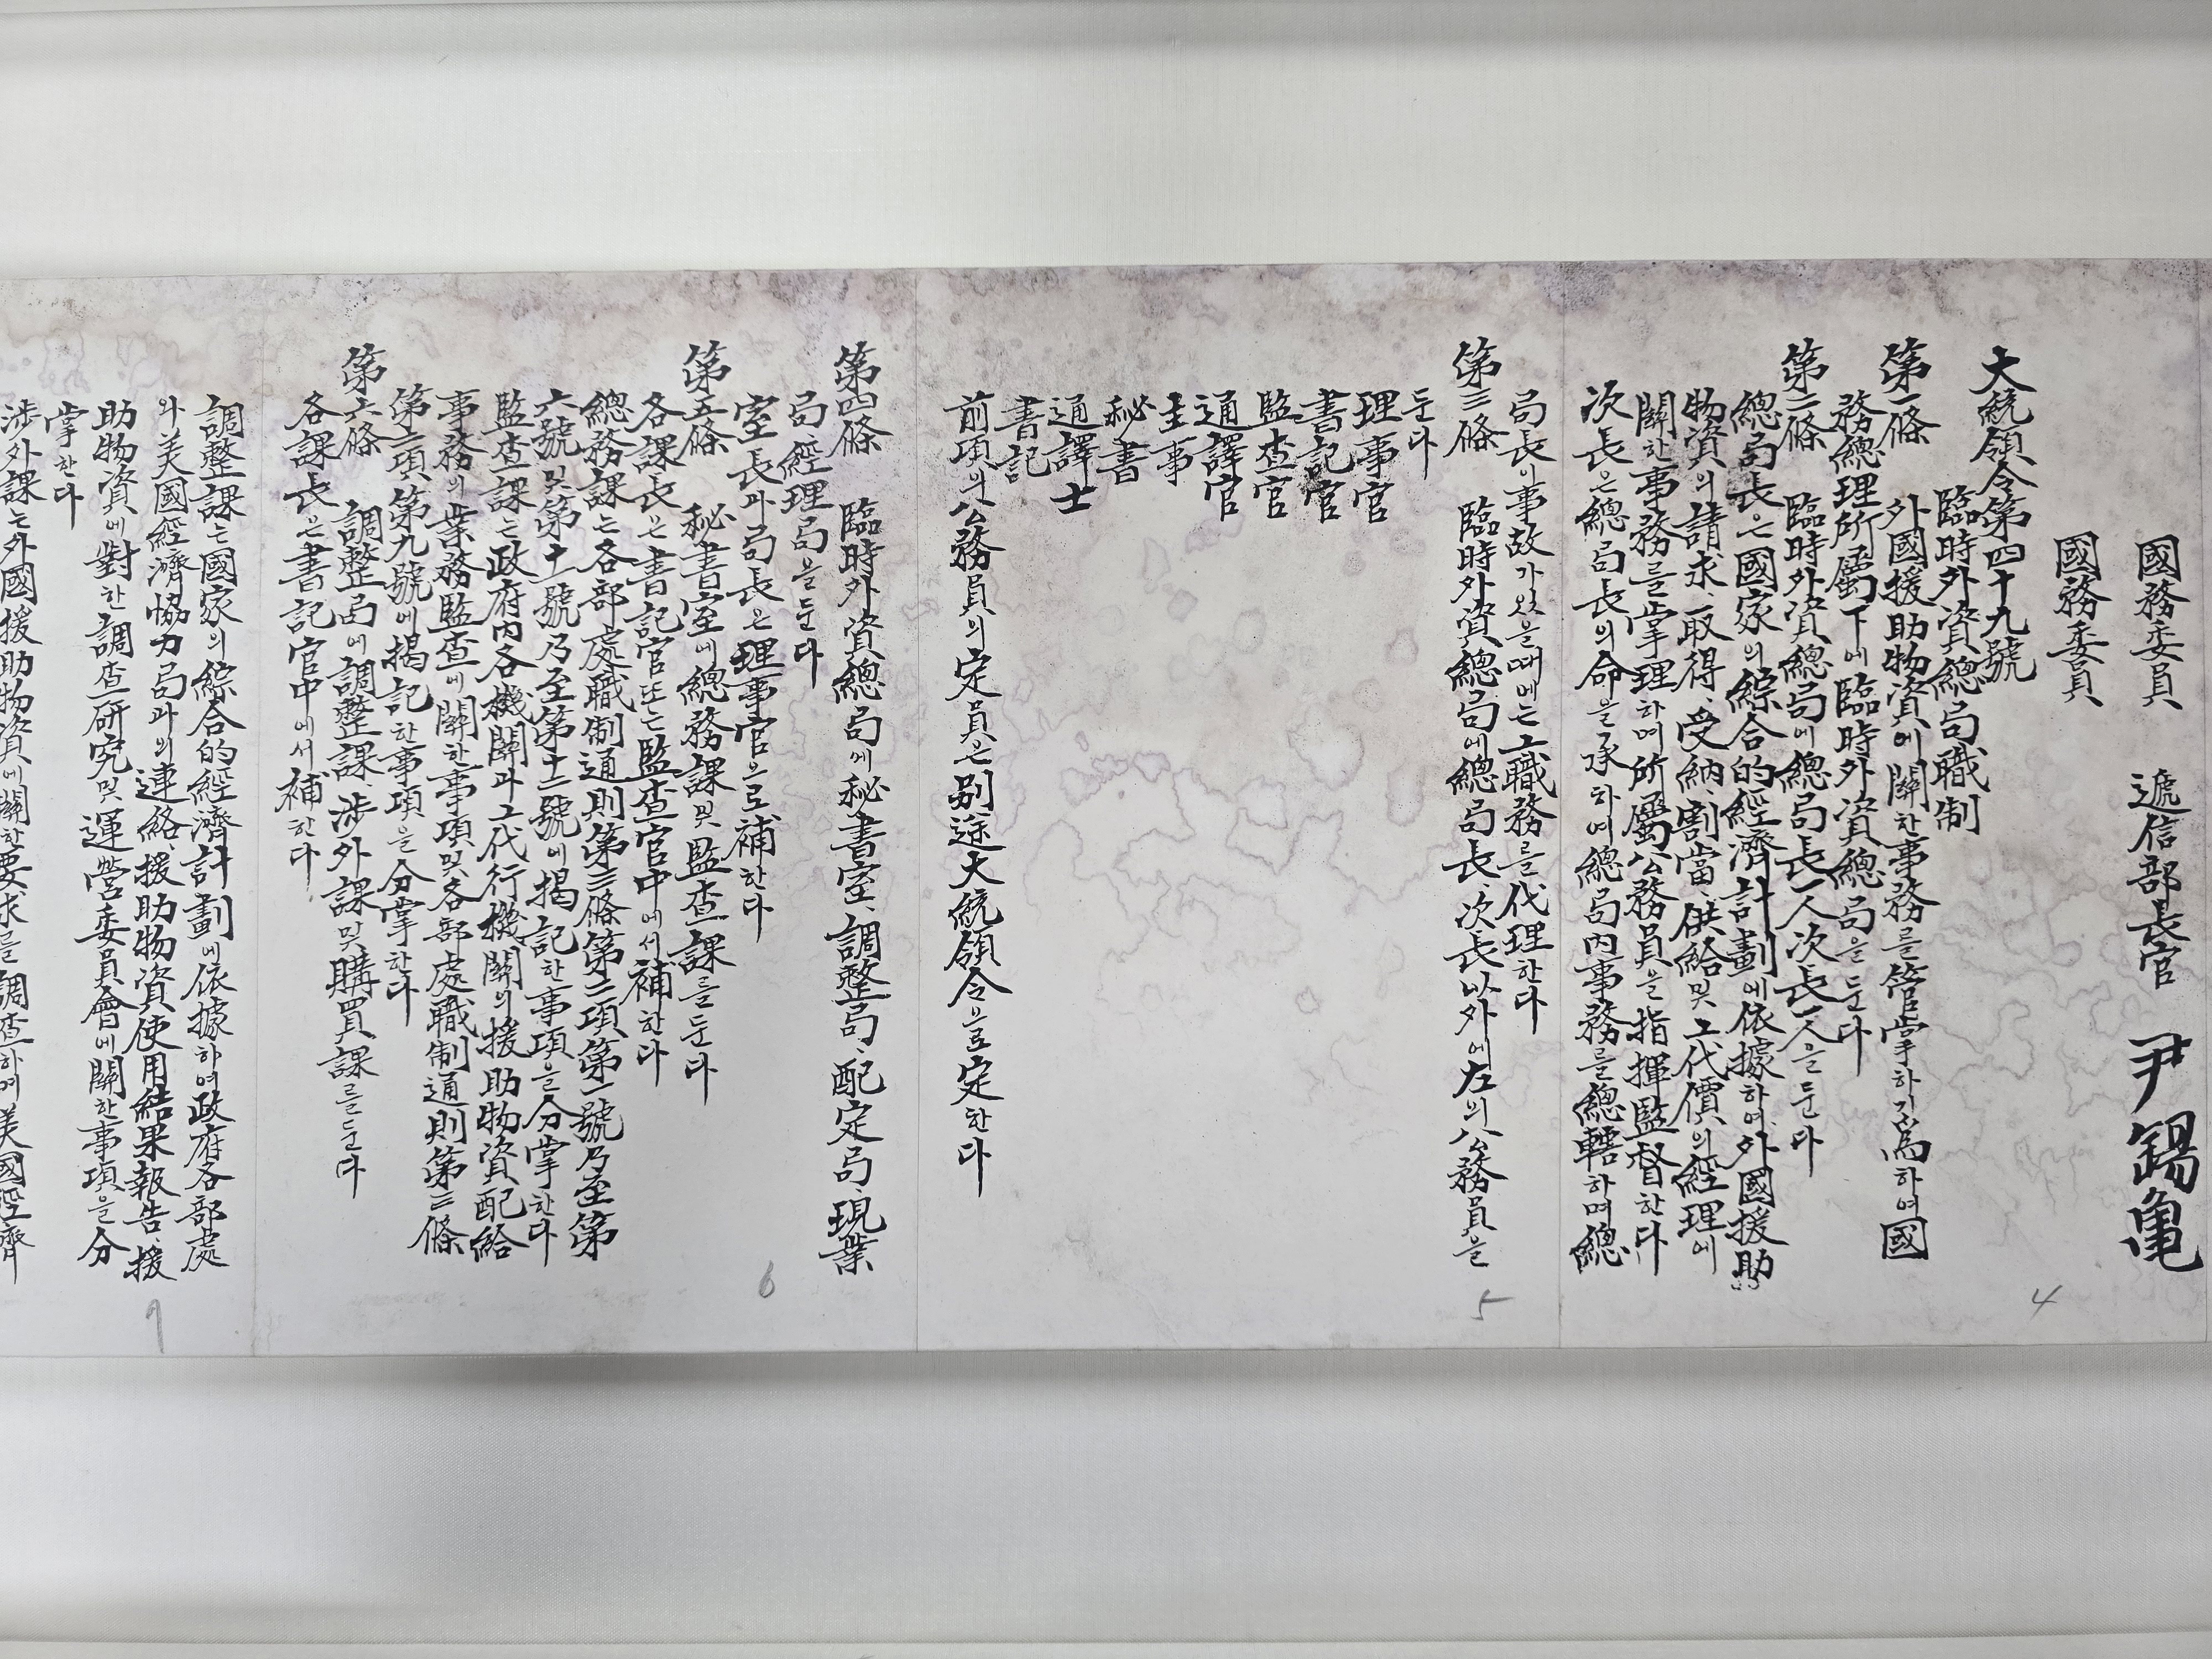 國務委員 遞信部長官 尹錫龜
國務委員
大統領令第四十九號
臨時外資總局職制
第一條 外國援助物資에關한事務를管掌하기爲하여國
務總理所屬下에臨時外資總局을둔다
第二條 臨時外資總局에總局長一人次長一人을둔다
總局長은國家의綜合的經濟計劃에依據하여外國援助
物資의請求、取得、受納、割當、供給및그代價의經理에
關한事務를掌理하며所屬公務員을指揮監督한다
次長은總局長의命을承하여總局內事務를總轄하며總
局長이事故가있을때에는그職務를代理한다
第三條 臨時外資總局에總局長、次長以外에左의公務員을
둔다
理事官
書記官
監查官
通譯官
主事
秘書
通譯士
書記
前項의公務員의定員은別途大統領令으로定한다
第四條 臨時外資總局에秘書室、調整局、配定局、現業
局、經理局을둔다
室長과局長은理事官으로補한다
第五條 秘書室에總務課및監查課를둔다
各課長은書記官또는監查官中에서補한다
總務課는各部處職制通則第三條第二項第一號乃至第
六號및第十一號乃至第十二號에揭記한事項을分掌한다
監查課는政府內各機關과그代行機關의援助物資配給
事務의業務監查에關한事項및各部處職制通則第三條
第二項第九號에揭記한事項을分掌한다
第六條 調整局에調整課、涉外課및購買課를둔다
各課長은書記官中에서補한다
調整課는國家의綜合的經濟計劃에依據하여政府各部處
와美國經濟協力局과의連絡、援助物資使用結果報告、援
助物資에對한調查硏究및運營委員會에關한事項을分
掌한다
涉外課는外國援助物資에關한要求를調查하며美國經濟
4
5
6
7